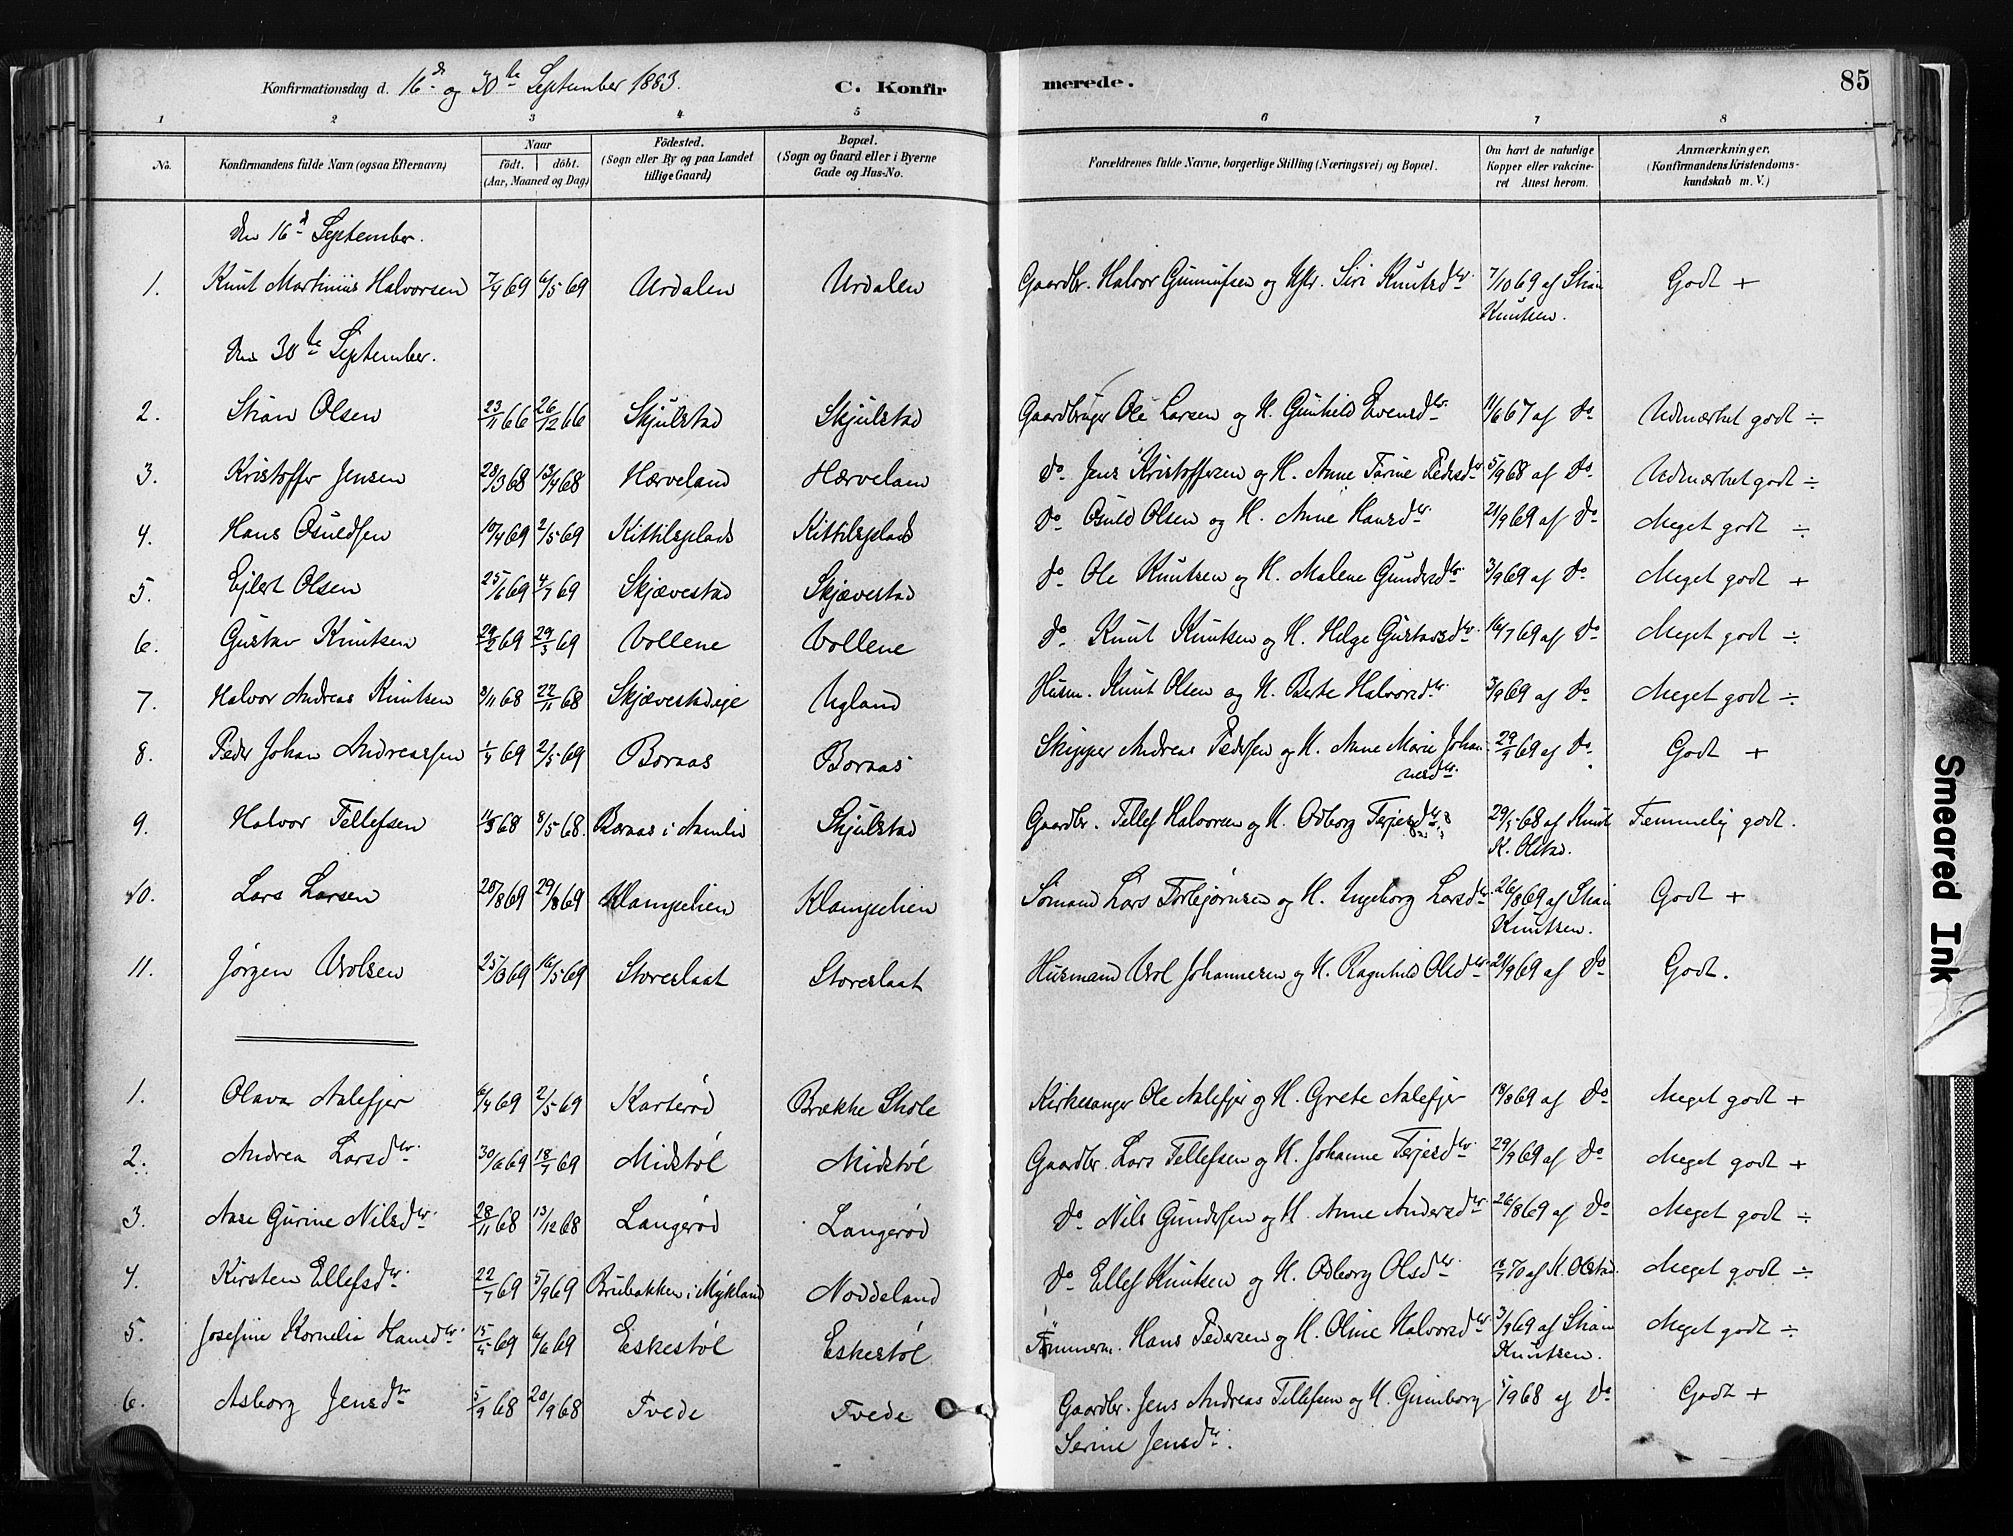 Konfirmationsdag d. 16de og 30te September 1883. C. Konfir merede. 85
1 2 3 4 5 6 7 8
No. Konfirmandens fulde Navn (ogsaa Efternavn) Naar født. døbt. (Aar, Maaned og Dag) Fødested. (Sogn eller By og paa Landet tillige Gaard) Bopæl. (Sogn og Gaard eller i Byerne Gade og Hus-No. Forældrenes fulde Navne, borgerlige Stilling (Næringsvei) og Bopæl. Om havt de naturlige Kopper eller vakcineret Attest herom. Anmærkninger, (Konfirmandens Kristendomskundskab m. V.)
Den 16d September.
1. Knut Martinius Halvorsen 7/4 69 6/5 69 Urdalen Urdalen Gaardbr. Halvor Gunnufsen og Hstr. Siri Knutsdtr. 7/10 69 af Stian
Knutsen. Godt +
Den 30te September.
2. Stian Olsen 23/11 66 26/12 66 Skjulstad Skjulstad Gaardbruger Ole Larsen og H. Gunhild Evensdtr. 11/6 67 af do Udmærket godt ÷
3. Kristoffer Jensen 28/3 68 13/4 68 Hærveland Hærveland do. Jens Kristoffersen og H. Anne Tarine Pedersdtr 5/9 68 af do. Udmærket godt ÷
4. Hans Osuldsen 10/4 69 2/5 69 Kittilsplads Kittilsplads do Osuld Olsen og H. Anne Hansdtr. 21/9 69 af do Meget godt ÷
5. Ejlert Olsen 25/6 69 4/7 69 Skjævestad Skjævestad do Ole Knutsen og H. Malene Gundersdtr. 3/9 69 af do Meget godt +
6. Gustav Knutsen 29/3 69 Vollene Vollene do. Knut Knutsen og H. Helge Gustavsdtr. 16/7 69 af do Meget godt ÷
7. Halvor Andreas Knutsen 8/11 68 22/11 68 Skjævestadeje Ugland Husm. Knut Olsen og H. Berte Halvorsdtr. 3/9 69 af do Meget godt ÷
8. Peder Johan Andreassen 1/4 69 2/5 69 Boraas Boraas Skipper Andreas Pedersen og H. Anne Marie Johan
nesdtr. 29/9 69 af do. Godt +
9. Halvor Tellefsen 8/5 68. Boraas i Aamlid Skjulstad Gaardbr. Tellef Halvorsen og H. Odborg Terjesdtr. 29/5 68 af Knut
K. Olstad. Temmelig godt.
10. Lars Larsen 20/8 69 29/8 69 Klampelien Klampelien Sømand Lars Torbjørnsen og H. Ingeborg Larsdtr 26/8 69 af Stian
Knutsen. Godt +
11. Jørgen Wrolsen 25/3 69 16/5 69 Storeslaat Storeslaat Husmand Wrol Johannesen og H. Ragnhild Olsdtr. 21/9 69 af do Godt.
1. Olava Aalefjer 6/4 69 2/5 69 Karterød Brække Skole Kirkesanger Ole Aalefjer og H. Grete Aalefjer 18/8 69 af do Meget godt +
2. Andrea Larsdtr. 30/6 69 18/7 69 Midstøl Midstøl Gaardbr. Lars Tellefsen og H. Johanne Terjesdtr. 29/9 69 af do Meget godt +
3. Aase Gurine Nilsdtr. 28/11 68 13/12 68 Langerød Langerød do Nils Gundersen og H. Anne Andersdtr. 26/8 69 af do Meget godt ÷
4. Kirsten Ellefsdtr. 22/7 69 5/9 69 Brubakken i Mykland Noddeland do Ellef Knutsen og H. Odborg Olsdtr. 18/7 70 af K. Olstad. Meget godt ÷
5. Josefine Kornelia Hansdtr. 15/5 69 6/6 69 Eskestøl Eskestøl Tømmerm. Hans Pedersen og H. Oline Halvorsdtr 3/9 69 af Stian
Knutsen. Meget godt ÷
6. Asborg Jensdtr 5/9 68 20/9 68 Tvede Tvede Gaardbr. Jens Andreas Tellefsen og H. Gunborg
Serine Jensdtr. 5/9 68 af do Godt +
Smeared Ink